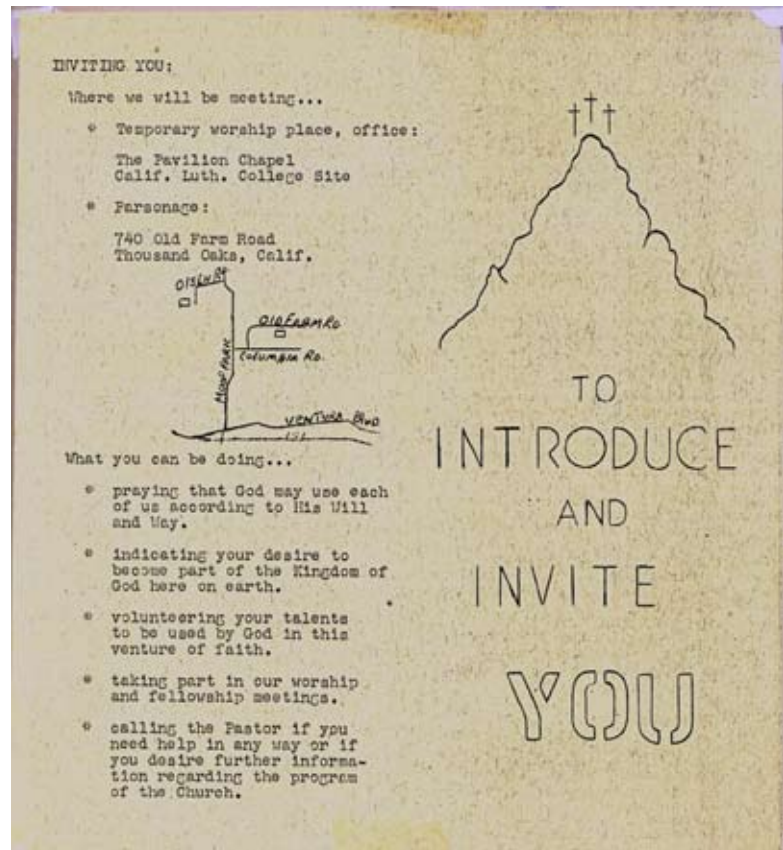 INVITING YOU:
Where we will be meeting...
* Temporary worship place, office:
The Pavilion Chapel
Calif. Luth. College Site
* Parsonage:
740 Old Farm Road
Thousand Oaks, Calif.
OLSEN RD
OLD FARM RD.
COLUMBIA RD.
MOORPARK
VENTURA BLVD
101
What you can be doing...
* praying that God may use each
of us according to His Will
and Way.
* indicating your desire to
become part of the Kingdom of
God here on earth.
* volunteering your talents
to be used by God in this
venture of faith.
* taking part in our worship
and fellowship meetings.
* calling the Pastor if you
need help in any way or if
you desire further informa-
tion regarding the program
of the Church.
TO
INTRODUCE
AND
INVITE
YOU